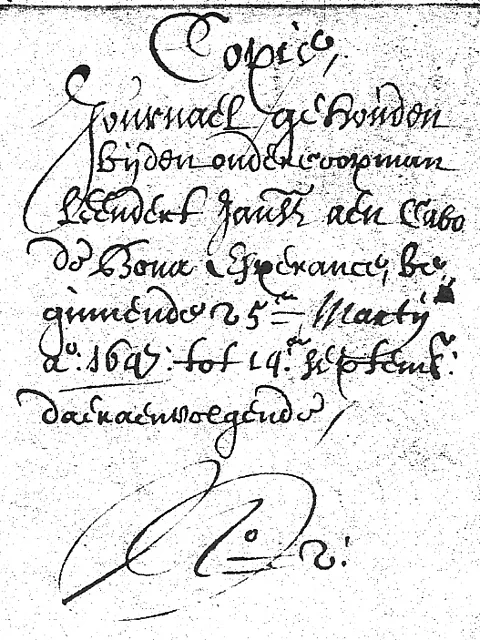 Copie,
Journael gehouden
bijden ondercoopman
Leendert Jansz aen Cabo
de Bona Esperance, be,,
ginnende 25en Martij
ao: 1647: tot 14en septemb:
daeraenvolgende /
No 2: